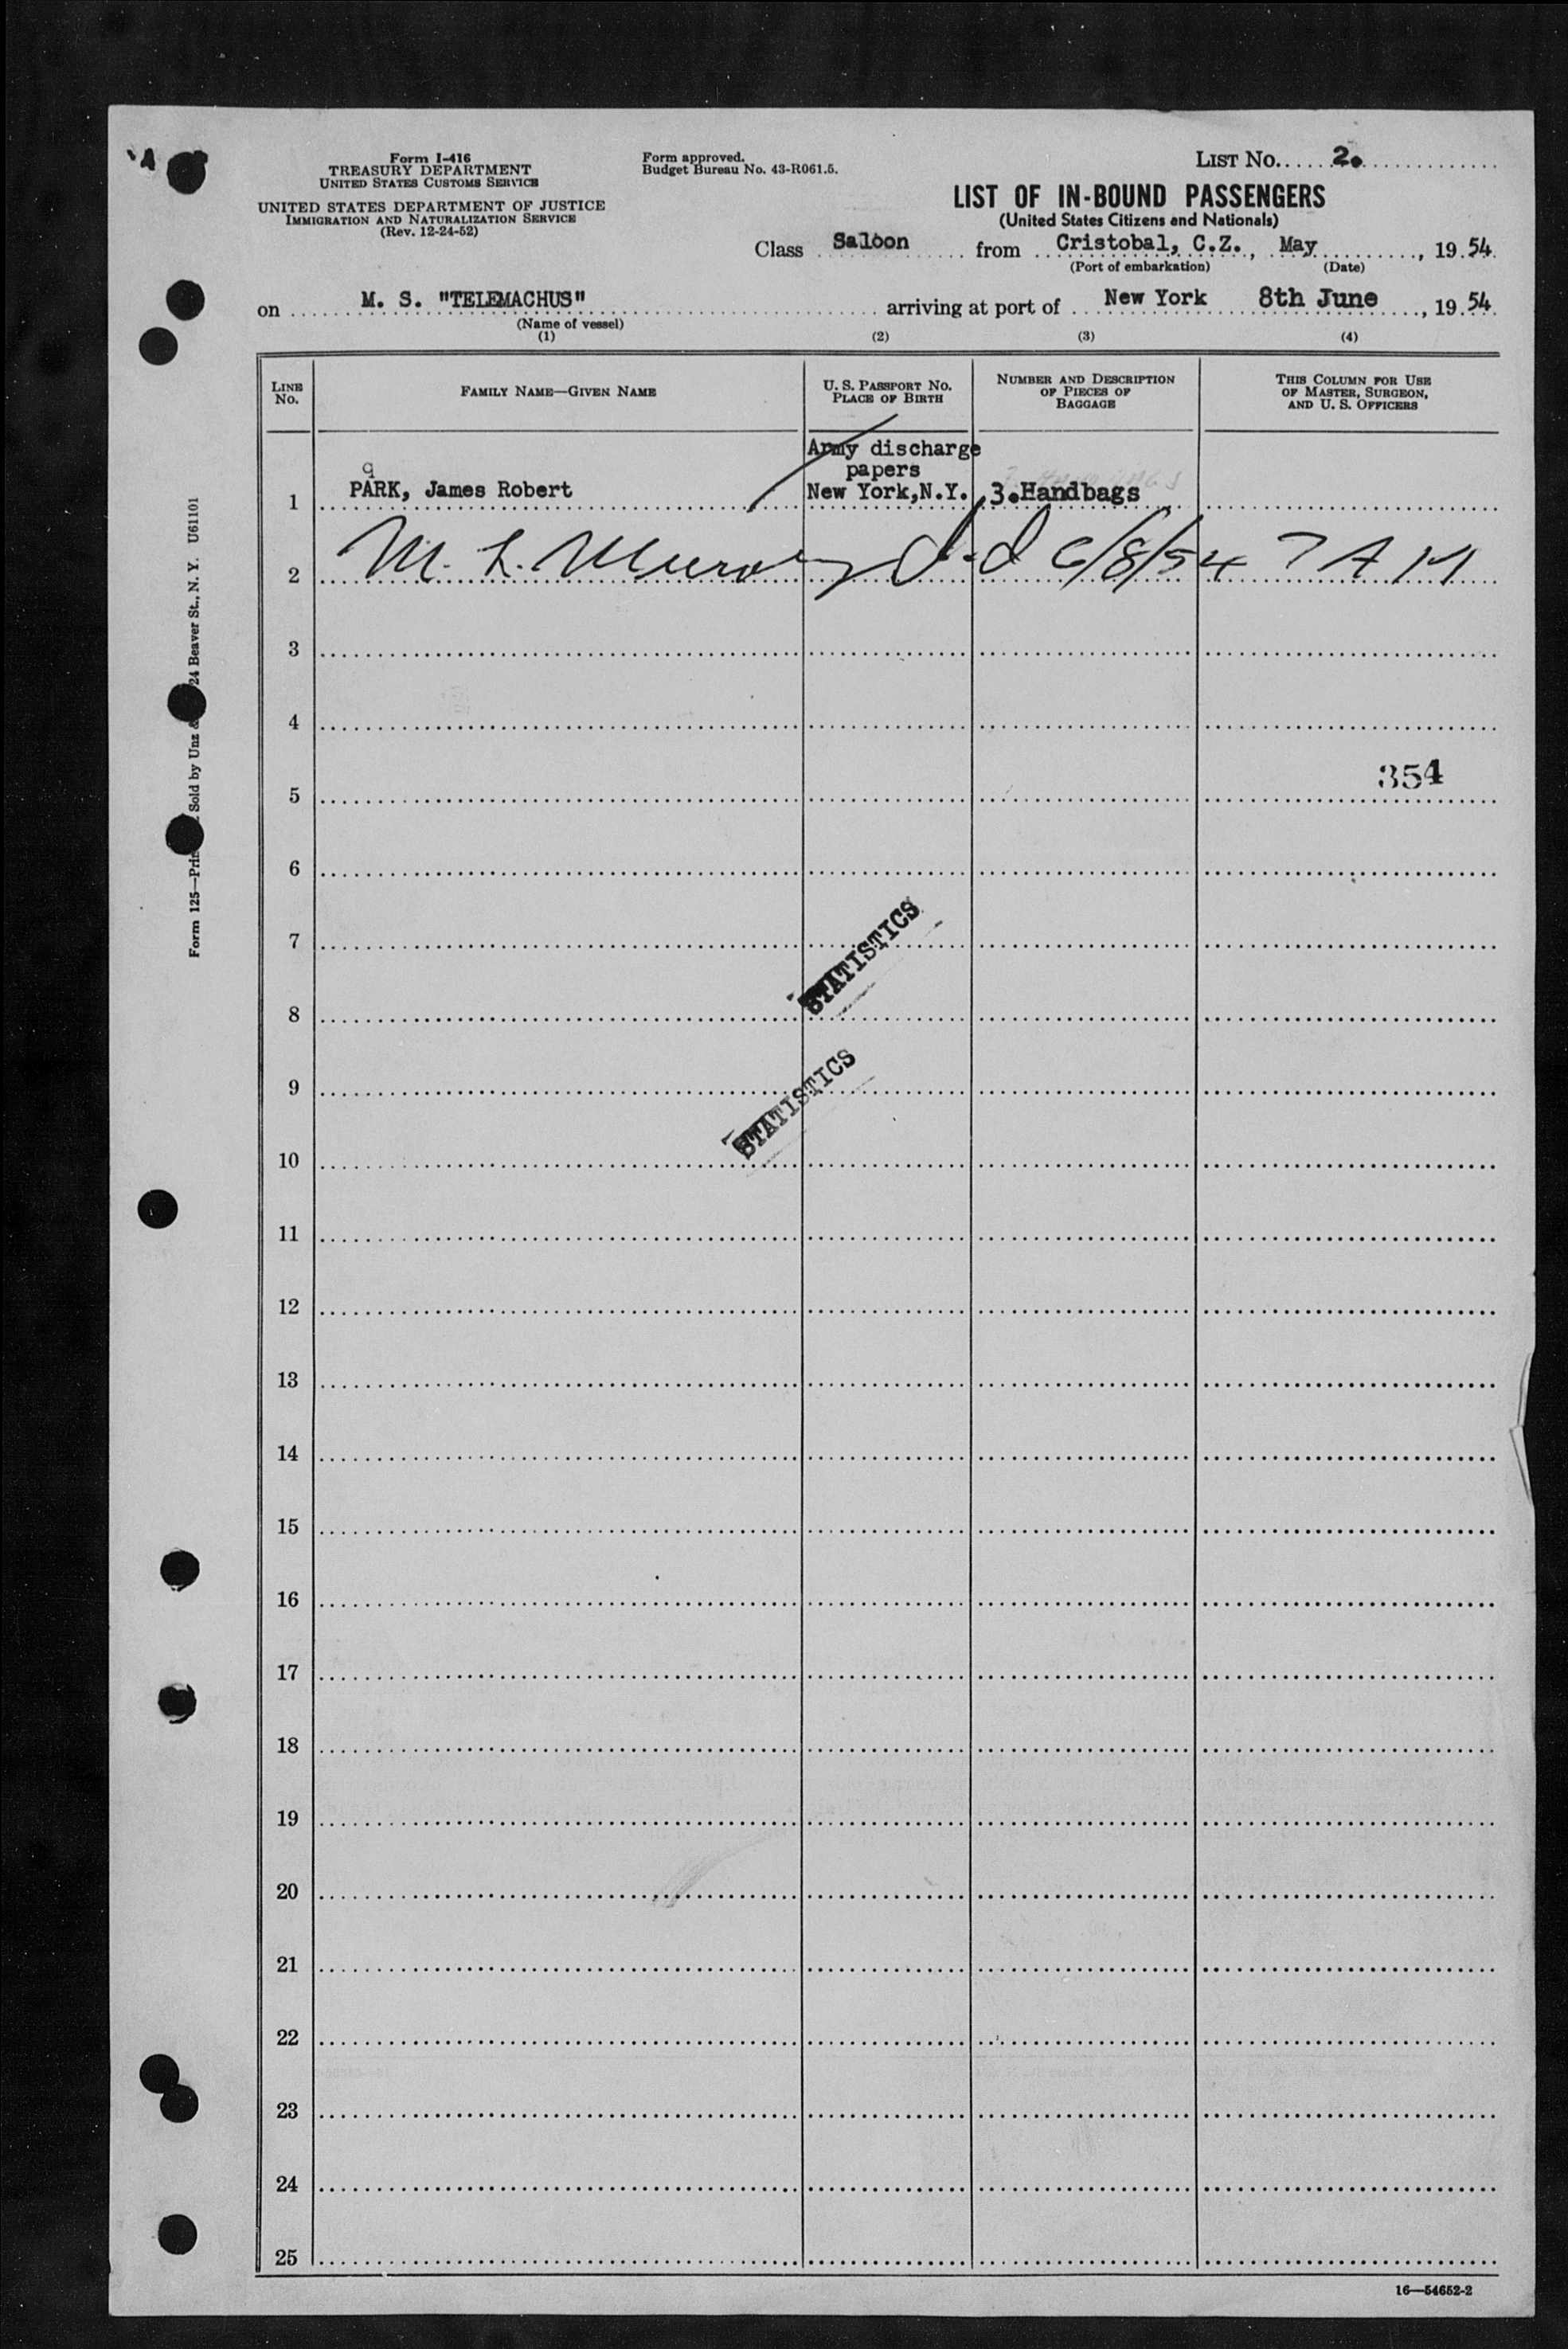 Form I-416
TREASURY DEPARTMENT
UNITED STATES CUSTOMS SERVICE
UNITED STATES DEPARTMENT OF JUSTICE
IMMIGRATION AND NATURALIZATION SERVICE
(Rev. 12-24-52)
Form approved.
Budget Bureau No. 43-R061.5.
LIST No. 2.
LIST OF IN-BOUND PASSENGERS
(United States Citizens and Nationals)
Class Saloon from Cristobal, C.Z., May, 19 54
(Port of embarkation) (Date)
on M. S. "TELEMACHUS" arriving at port of New York 8th June, 19 54
(Name of vessel)
(1) (2) (3) (4)
LINE No. FAMILY NAME—GIVEN NAME U. S. PASSPORT No. PLACE OF BIRTH NUMBER AND DESCRIPTION OF PIECES OF BAGGAGE THIS COLUMN FOR USE OF MASTER, SURGEON, AND U. S. OFFICERS
Army discharge
papers
1 PARK, James Robert New York, N.Y. 3. Handbags
2 M. L. 6/8/54 7 AM
3
4
354
5
6
7
STATISTICS
8
9
STATISTICS
10
11
12
13
14
15
16
17
18
19
20
21
22
23
24
25
16—54652-2
Form 125— Sold by Unz 24 Beaver St., N. Y. U61101